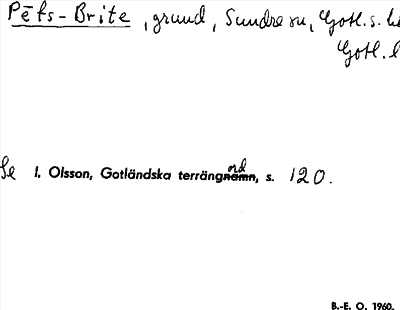 Pēts-Brite, grund, Sundre sn, Gotl. s. hd
Gotl. l
Se I. Olsson, Gotländska terrängnamn, s. 120.
ord
B.-E. O. 1960.